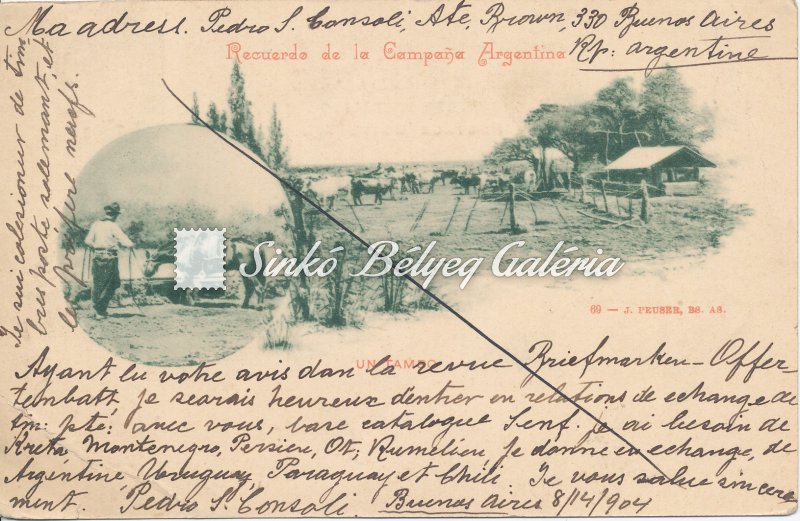 Ma adress. Pedro S. Consoli, Ate, Brown, 330 Buenos Aires
Rp: argentine
Recuerdo de la Campaña Argentina
Je sui colesionur de tim
bris poste solemant, et
le préfére neufs.
Sinkó Bélyeg Galéria
69 — J. PEUSER, BS. AS.
UN TAMBO
Ayant lu votre avis dan la revue Briefmarken-Offer-
tenbatt, je searais heureux d'entrer en relations de echange de
tm: pté: avec vous, base catalogue Senf. je ai besoin de
Kreta, Montenegro, Persien, Ot; Rumelien, je donne en echange, de
Argentine Uruguay, Paraguay et Chili. Je vous salue sincere
ment. Pedro S. Consoli Buenos Aires 8/14/904